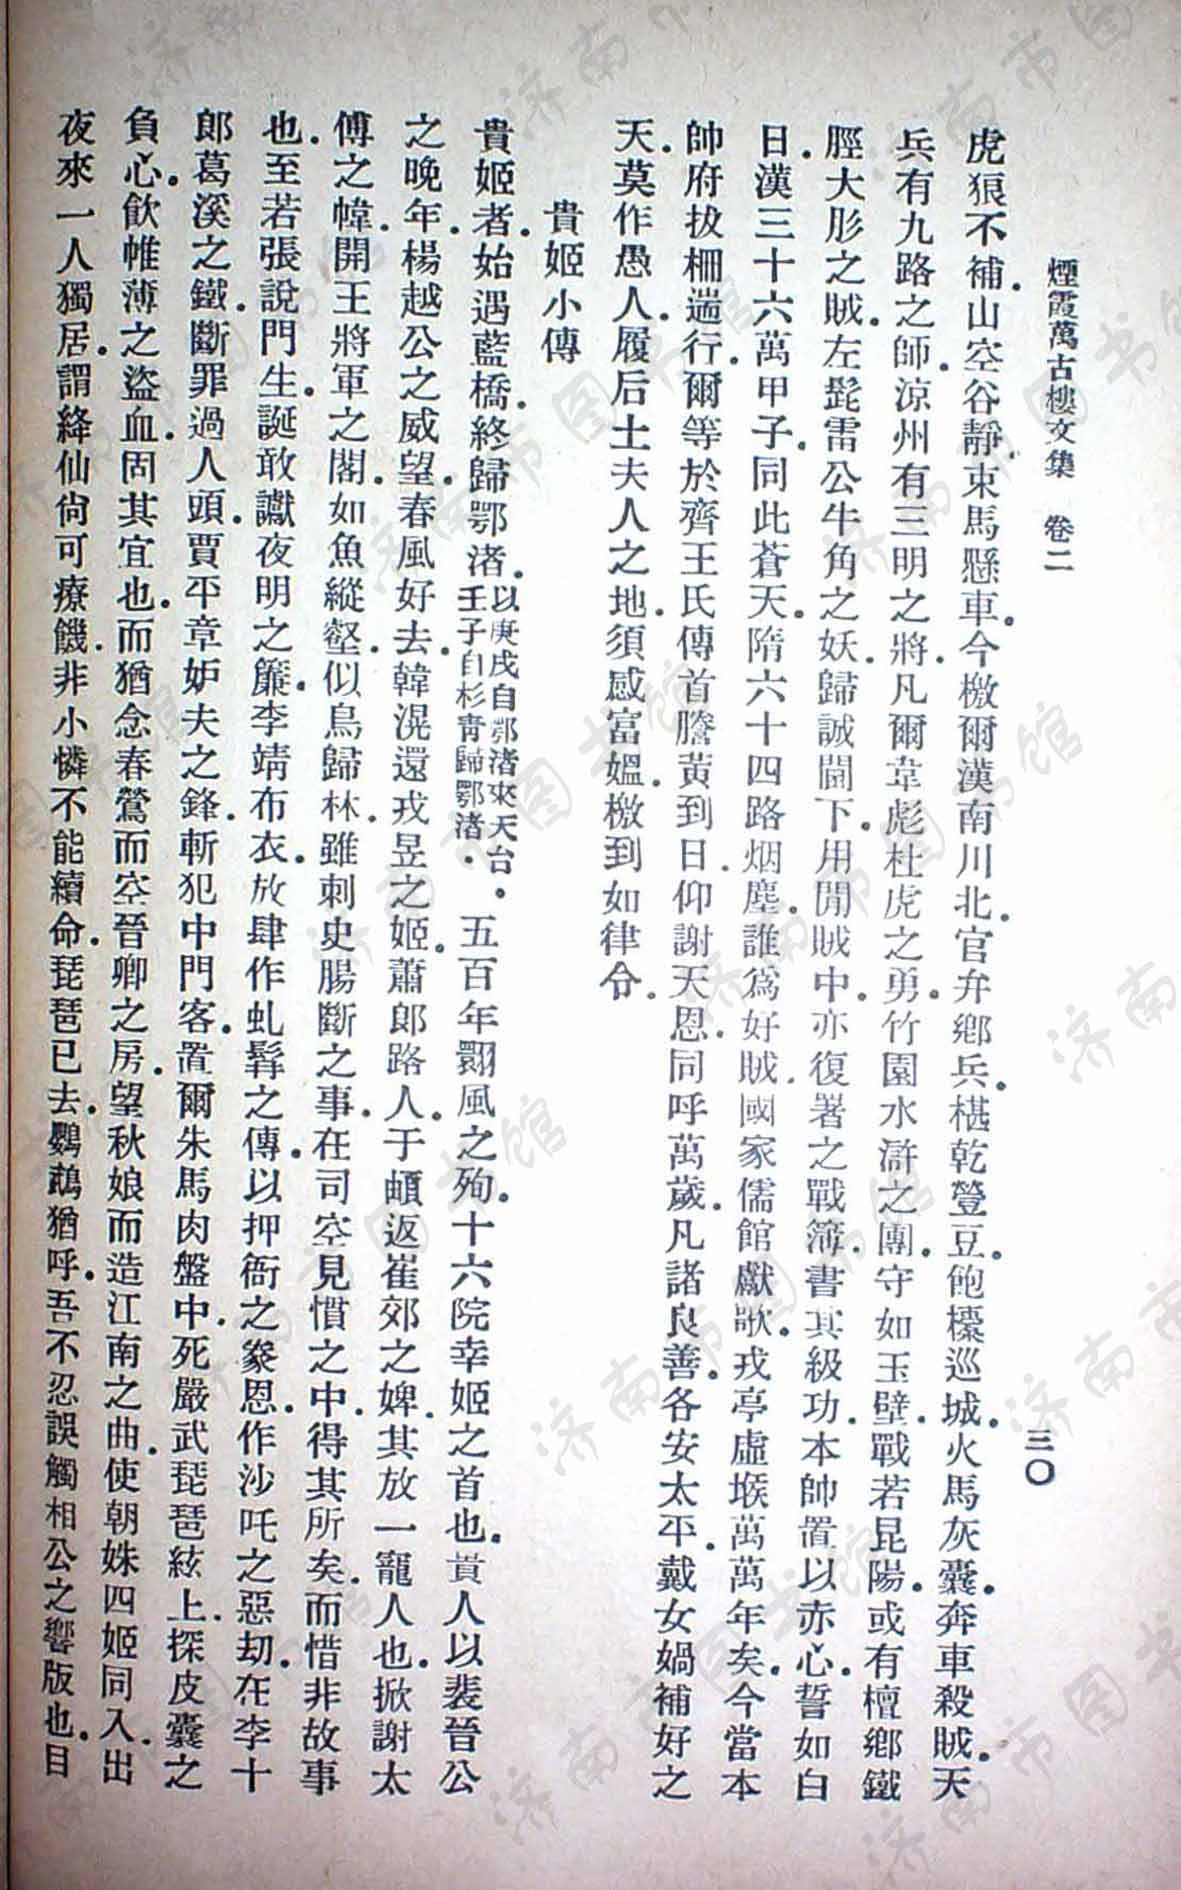 煙霞萬古樓文集　卷二
三〇
虎狼不補．山空谷靜．束馬懸車．今檄爾漢南川北．官弁鄉兵．椹乾䝁豆．飽櫜巡城．火馬灰囊．奔車殺賊．天
兵有九路之師．涼州有三明之將．凡爾韋彪杜虎之勇．竹園水滸之團．守如玉壁．戰若昆陽．或有檀鄉鐵
脛大肜之賊．左髭雷公牛角之妖．歸誠閫下．用閒賊中．亦復署之戰簿．書其級功．本帥置以赤心．誓如白
日．漢三十六萬甲子．同此蒼天．隋六十四路烟塵．誰爲好賊．國家儒館獻歌．戎亭虛堠．萬萬年矣．今當本
帥府拔柵遄行．爾等於齊王氏傳首謄黃到日．仰謝天恩．同呼萬歲．凡諸良善．各安太平．戴女媧補好之
天．莫作愚人．履后土夫人之地．須感富媼．檄到如律令．
貴姬小傳
貴姬者．始遇藍橋．終歸鄂渚．以庚戌自鄂渚來天台．壬子自杉青歸鄂渚．五百年翾風之殉．十六院幸姬之首也．貴人以裴晉公
之晚年．楊越公之威望．春風好去．韓滉還戎昱之姬．蕭郎路人．于頔返崔郊之婢．其放一寵人也．掀謝太
傅之幃．開王將軍之閣．如魚縱壑．似鳥歸林．雖刺史腸斷之事．在司空見慣之中．得其所矣．而惜非故事
也．至若張說門生．誕敢讞夜明之簾．李靖布衣．放肆作虬髯之傳．以押衙之豢恩．作沙吒之惡劫．在李十
郎葛溪之鐵．斷罪過人頭．賈平章妒夫之鋒．斬犯中門客．置爾朱馬肉盤中．死嚴武琵琶絃上．探皮囊之
負心．飲帷薄之盜血．固其宜也．而猶念春鶯而空晉卿之房．望秋娘而造江南之曲．使朝姝四姬同入．出
夜來一人獨居．謂絳仙尙可療饑．非小憐不能續命．琵琶已去．鸚鵡猶呼．吾不忍誤觸相公之響版也．日
济南市图书馆